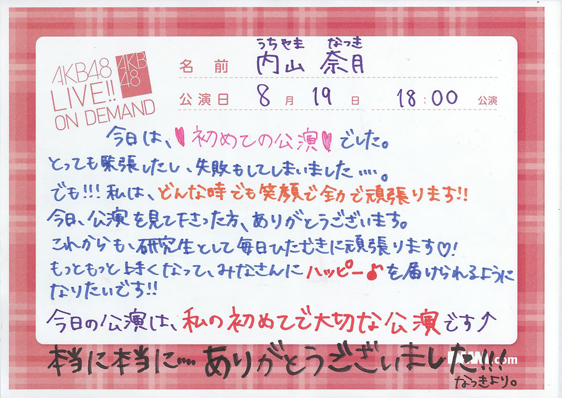 AKB48
LIVE!!
ON DEMAND
AKB
48
うちやま なつき
名前 内山 奈月
公演日 8月 19日 18:00 公演
今日は、♥初めての公演♥でした。
とっても緊張したし、失敗もしてしまいました....。
でも!!!私は、どんな時でも笑顔で全力で頑張ります!!
今日、公演を見て下さった方、ありがとうございます。
これからも、研究生として毎日ひたむきに頑張ります♡!
もっともっと上手くなって、みなさんにハッピー♪を届けられるように
なりたいです!!
今日の公演は、私の初めてで大切な公演です↑
本当に本当に....ありがとうございました!!!
.com
なつきより。